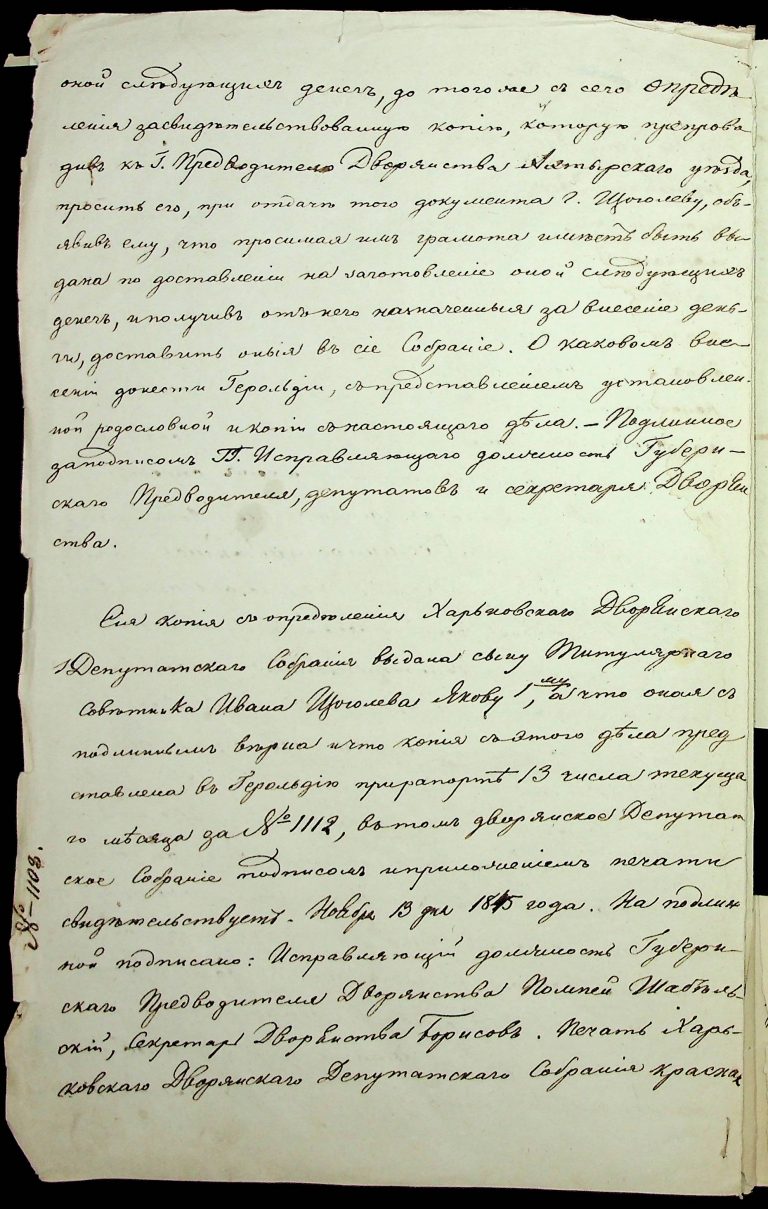 оной слѣдующихъ денегъ, до того же съ сего опредѣ
ленія засвидѣтельствованную копію, которую препрово
дивъ къ Г. Предводителю Дворянства Ахтырскаго уѣзда,
просить его, при отдачѣ того документа Г. Щоголеву, объ-
явивъ ему, что просимая имъ грамота имѣетъ быть вы-
дана по доставленіи на заготовленіе оной слѣдующихъ
денегъ, и получивъ отъ него назначенныя за внесеніе день-
ги, доставить оныя въ сіе Собраніе. О каковомъ вне-
сеніи донести Герольдіи, съ представленіемъ установлен-
ной родословной и копіи съ настоящаго дѣла. – Подлинное
за подписомъ ГГ. Исправляющаго должность Губерн-
скаго Предводителя, депутатовъ и секретаря Дворян
ства.
Сія копія съ опредѣленія Харьковскаго Дворянскаго
Депутатскаго Собранія выдана сыну Титулярнаго
Совѣтника Ивана Щоголева Якову 1му, а что оная съ
подлиннымъ вѣрна и что копія съ этого дѣла пред
ставлена въ Герольдію при рапортѣ 13 числа текуща
го мѣсяца за № 1112, въ томъ дворянское Депутат
ское Собраніе подписомъ и приложеніемъ печати
свидѣтельствуетъ. Ноября 13 дня 1845 года. На подлин
ной подписано: Исправляющій должность Губерн-
скаго Предводителя Дворянства Помпей Шабѣль-
скій, Секретарь Дворянства Борисовъ. Печать Харь-
ковскаго Дворянскаго Депутатскаго Собранія красная
№ 1108.